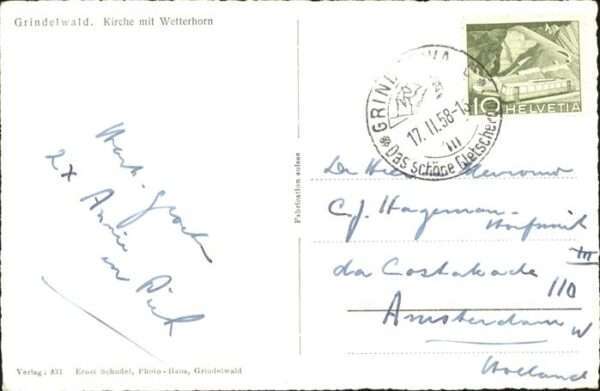 Grindelwald. Kirche mit Wetterhorn
Hart. groeten
2x Annie
en Dick
Verlag: 831 Ernst Schudel, Photo-Haus, Grindelwald
Fabrication suisse
10 HELVETIA
GRINDELWALD
17.II.58-1
Das schöne Gletscherdorf
De Heer Mevrouw
C.J. Hageman-
da Costakade 110
III
Amsterdam W
Holland